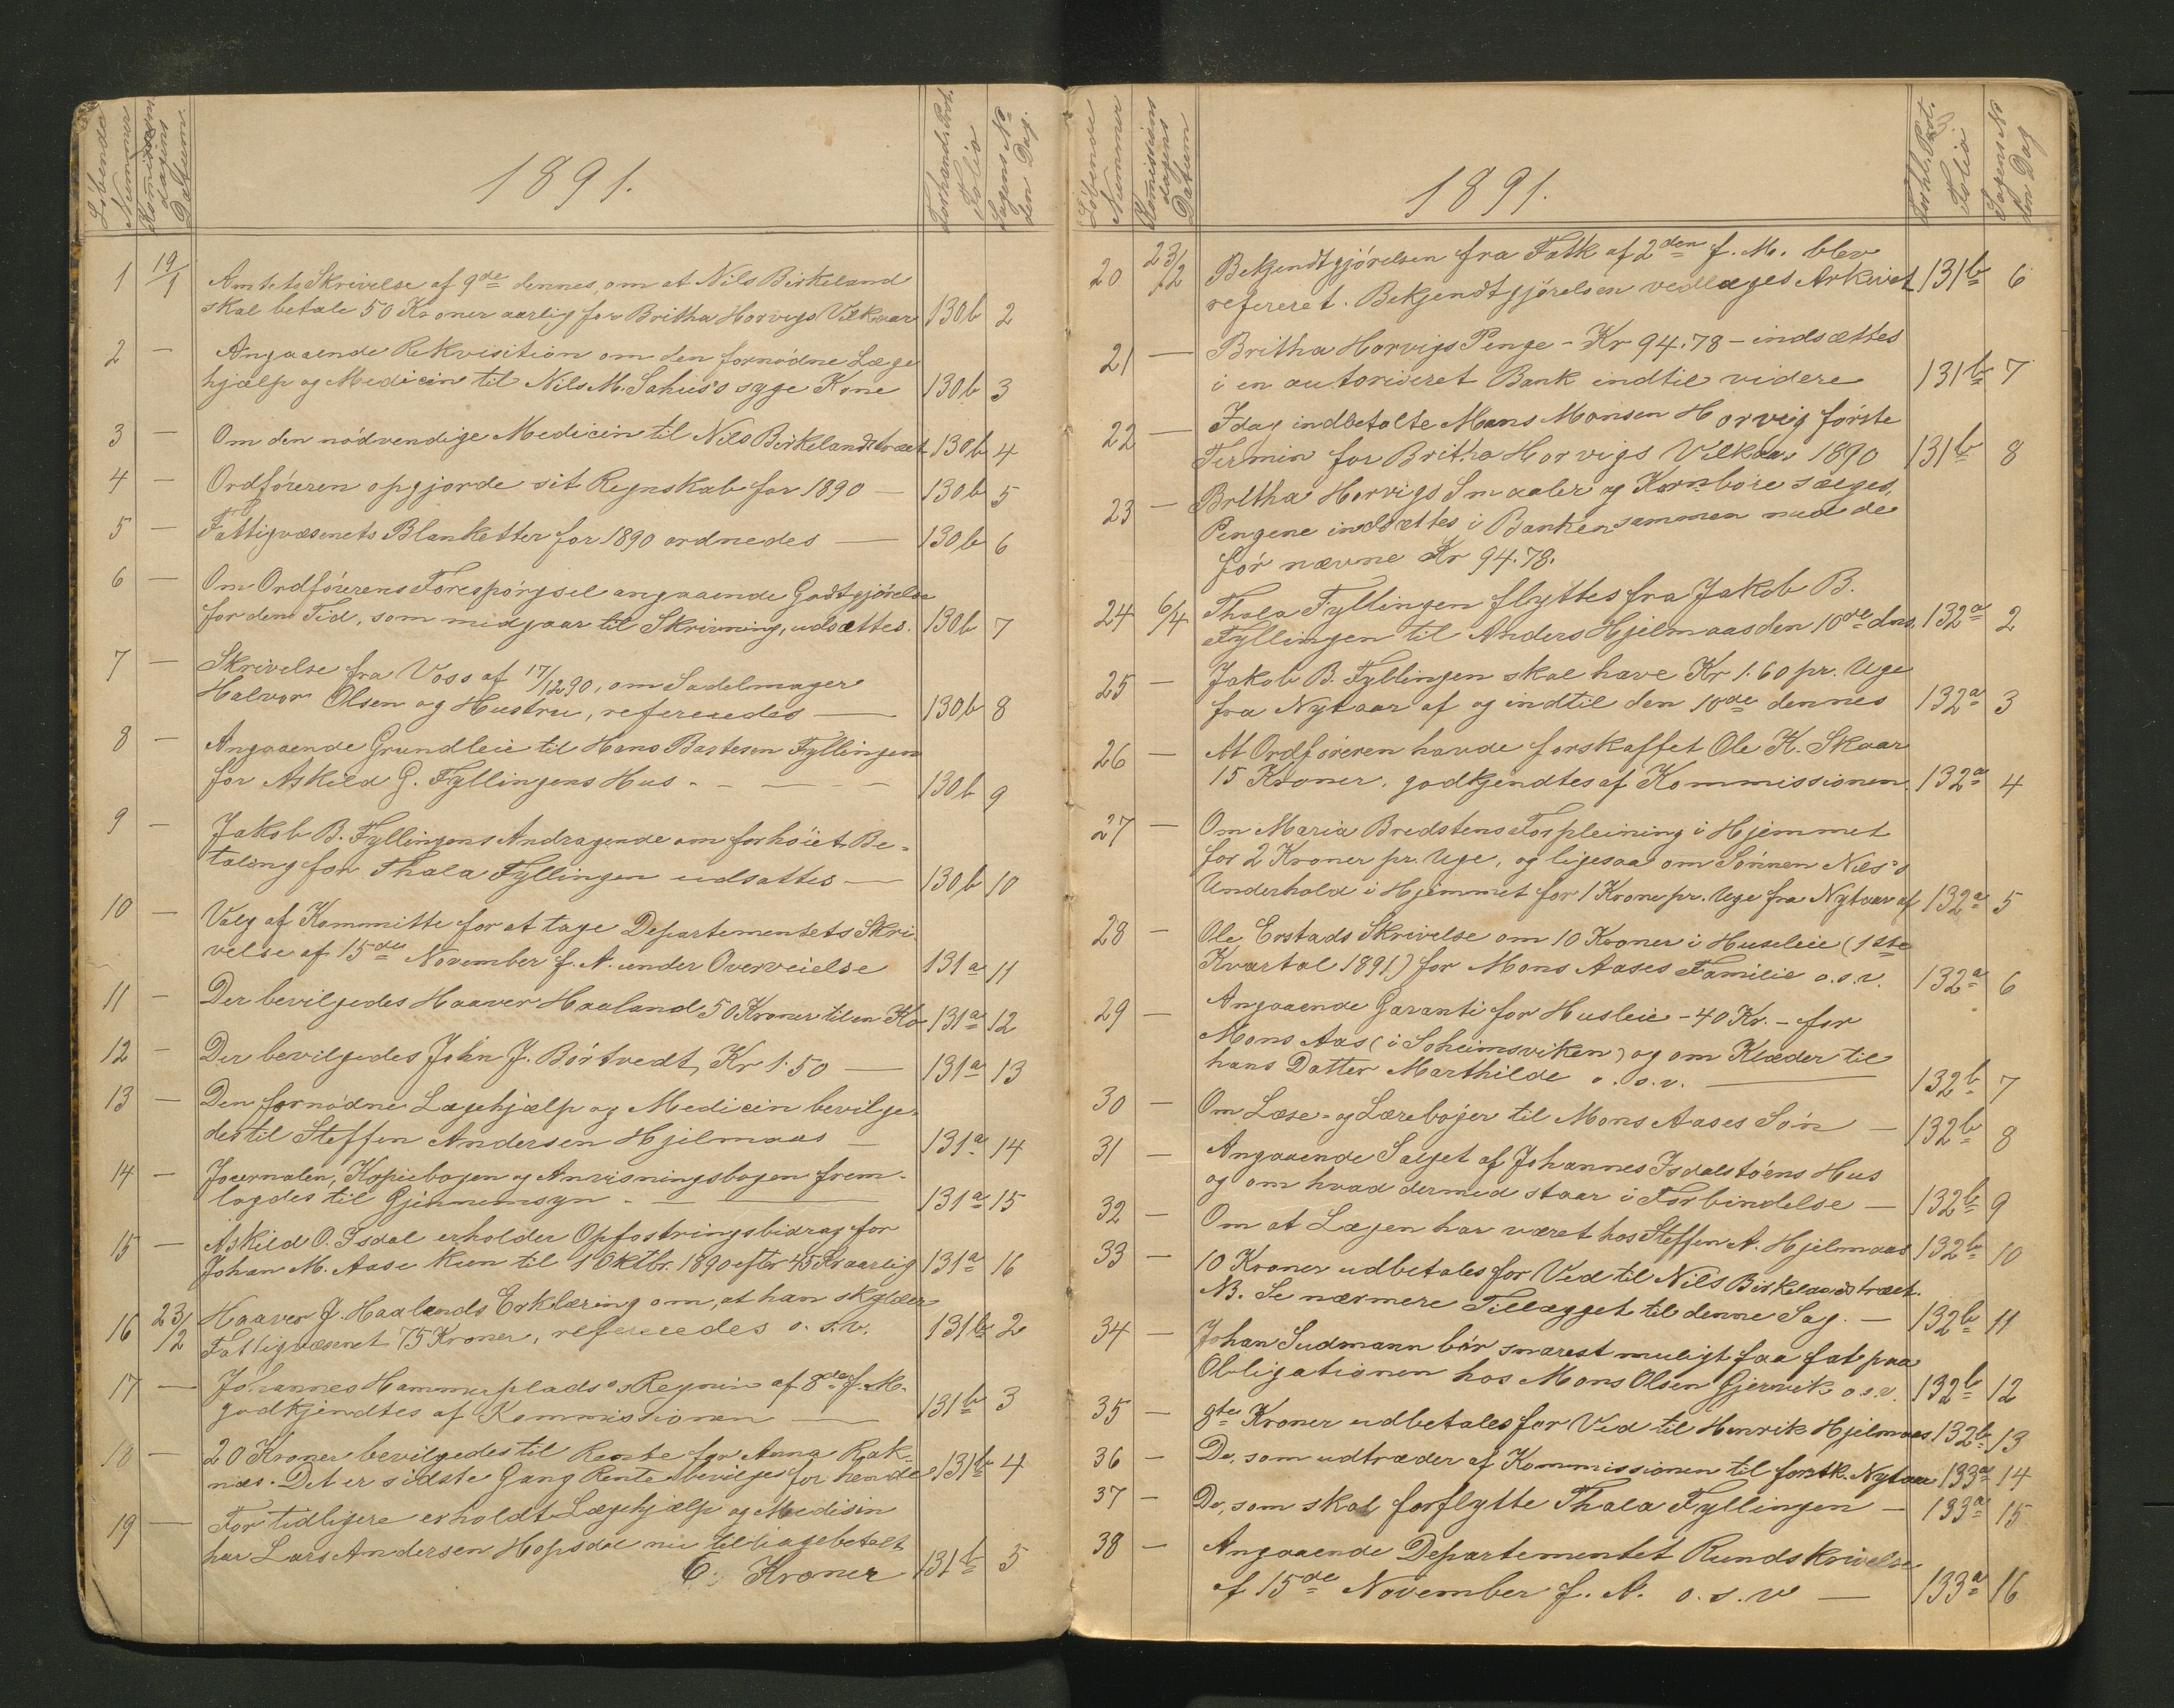 Löbende
Nummer
Kommissions
dagens
Datum.
1891.
Forhands. Prot.
Folio
Sagens No
den Dag.
1 19/1 Amtets Skrivelse af 9de dennes, om at Nils Birkeland
skal betale 50 Kroner aarlig for Britha Horvigs Vilkaar 130b 2
2 — Angaaende Rekvisition om den fornödne Læge
hjælp og Medicin til Nils M. Sahus's syge Kone 130b 3
3 — Om den nödvendige Medicin til Nils Birkelandstræet 130b 4
4 — Ordföreren opgjorde sit Regnskab for 1890 — 130b 5
5 — Fattigvæsenets Blanketter for 1890 ordnedes — 130b 6
6 — Om Ordförerens Forespörgsel angaaende Godtgjörelse
for den Tid, som medgaar til Skrivning, udsættes. 130b 7
7 — Skrivelse fra Voss af 17/12 90, om Sadelmager
Halvor Olsen og Hustru, refereredes — 130b 8
8 — Angaaende Grundleie til Hans Bastesen Fyllingen
for Askild G. Fyllingens Hus - - — - - 130b 9
9 — Jakob B. Fyllingens Andragende om forhöiet Be-
taling for Thala Fyllingen udsattes — 130b 10
10 — Valg af Kommitte for at tage Departementets Skri-
velse af 15de November f. A. under Overveielse 131a 11
11 — Der bevilgedes Haaver Haaland 50 Kroner til en Ko 131a 12
12 — Der bevilgedes John J. Börtvedt, Kr 1.50 — 131a 13
13 — Den fornödne Lægehjælp og Medicin bevilge-
des til Steffen Andersen Hjelmaas — 131a 14
14 — Journalen, Kopiebogen og Anvisningsbogen frem-
lagdes til Gjennemsyn - — 131a 15
15 — Askild O. Isdal erholder Opfostringsbidrag for
Johan M. Aase kun til 1 Oktbr. 1890 efter 45 Kr aarlig 131a 16
16 23/2 Haaver J. Haalands Erklæring om, at han skylder
Fattigvæsenet 75 Kroner, refereredes o. s. v. 131b 2
17 — Johannes Hammerplads's Regnin af 8de f. M.
godkjendtes af Kommissionen — 131b 3
18 — 20 Kroner bevilgedes til Rente for Anna Rak-
næs. Det er sidste Gang Rente bevilges for hende 131b 4
19 — For tidligere erholdt Lægehjælp og Medisin
har Lars Andersen Hopsdal nu tilbagebetalt
6 Kroner 131b 5
Löbende
Nummer
Kommissions
dagens
Datum
1891.
Forhl. Prot.
Folio
Sagens No
den Dag
20 23/2 Bekjendtgjörelsen fra Fatk af 2den f. M. blev
refereret. Bekjendtgjörelsen vedlæges Arkivet 131b 6
21 — Britha Horvigs Penge - Kr 94.78 - indsættes
i en autoriseret Bank indtil videre 131b 7
22 — Idag indbetalte Mons Monsen Horvig förste
Termin for Britha Horvigs Vilkaar 1890 131b 8
23 — Britha Horvigs Smaaler og Kornbøre sælges.
Pengene indsættes i Banken sammen med de
för nævne Kr 94.78.
24 6/4 Thala Fyllingen flyttes fra Jakob B.
Fyllingen til Anders Hjelmaas den 10de dns. 132a 2
25 — Jakob B. Fyllingen skal have Kr 1.60 pr. Uge
fra Nytaar af og indtil den 10de dennes 132a 3
26 — At Ordföreren havde forskaffet Ole K. Skaar
15 Kroner, godkjendtes af Kommissionen. 132a 4
27 — Om Maria Bredstens Forpleining i Hjemmet
for 2 Kroner pr. Uge, og ligesaa om Sönnen Nils's
Underhold i Hjemmet for 1 Krone pr. Uge fra Nytaar af 132a 5
28 — Ole Erstads Skrivelse om 10 Kroner i Husleie (1ste
Kvartal 1891) for Mons Aases Familie o. s. v. 132a 6
29 — Angaaende Garanti for Husleie - 40 Kr. - for
Mons Aas (i Solheimsviken) og om Klæder til
hans Datter Marthilde o. s. v. — 132b 7
30 — Om Læse- og Lærebøger til Mons Aases Sön — 132b 8
31 — Angaaende Salget af Johannes Isdalstöens Hus
og om hvad dermed staar i Forbindelse — 132b 9
32 — Om at Lægen har været hos Steffen A. Hjelmaas 132b 10
33 — 10 Kroner udbetales for Ved til Nils Birkelandstræet.
NB. Se nærmere Tillægget til denne Sag. — 132b 11
34 — Johan Sudmann bör snarest muligt faa fat paa
Obligationen hos Mons Olsen Gjervik o. s. v. 132b 12
35 — 9te Kroner udbetales for Ved til Henrik Hjelmaas 132b 13
36 — De, som udtræder af Kommissionen til förstk. Nytaar 133a 14
37 — De, som skal forflytte Thala Fyllingen — 133a 15
38 — Angaaende Departementet Rundskrivelse
af 15de November f. A. o. s. v — 133a 16